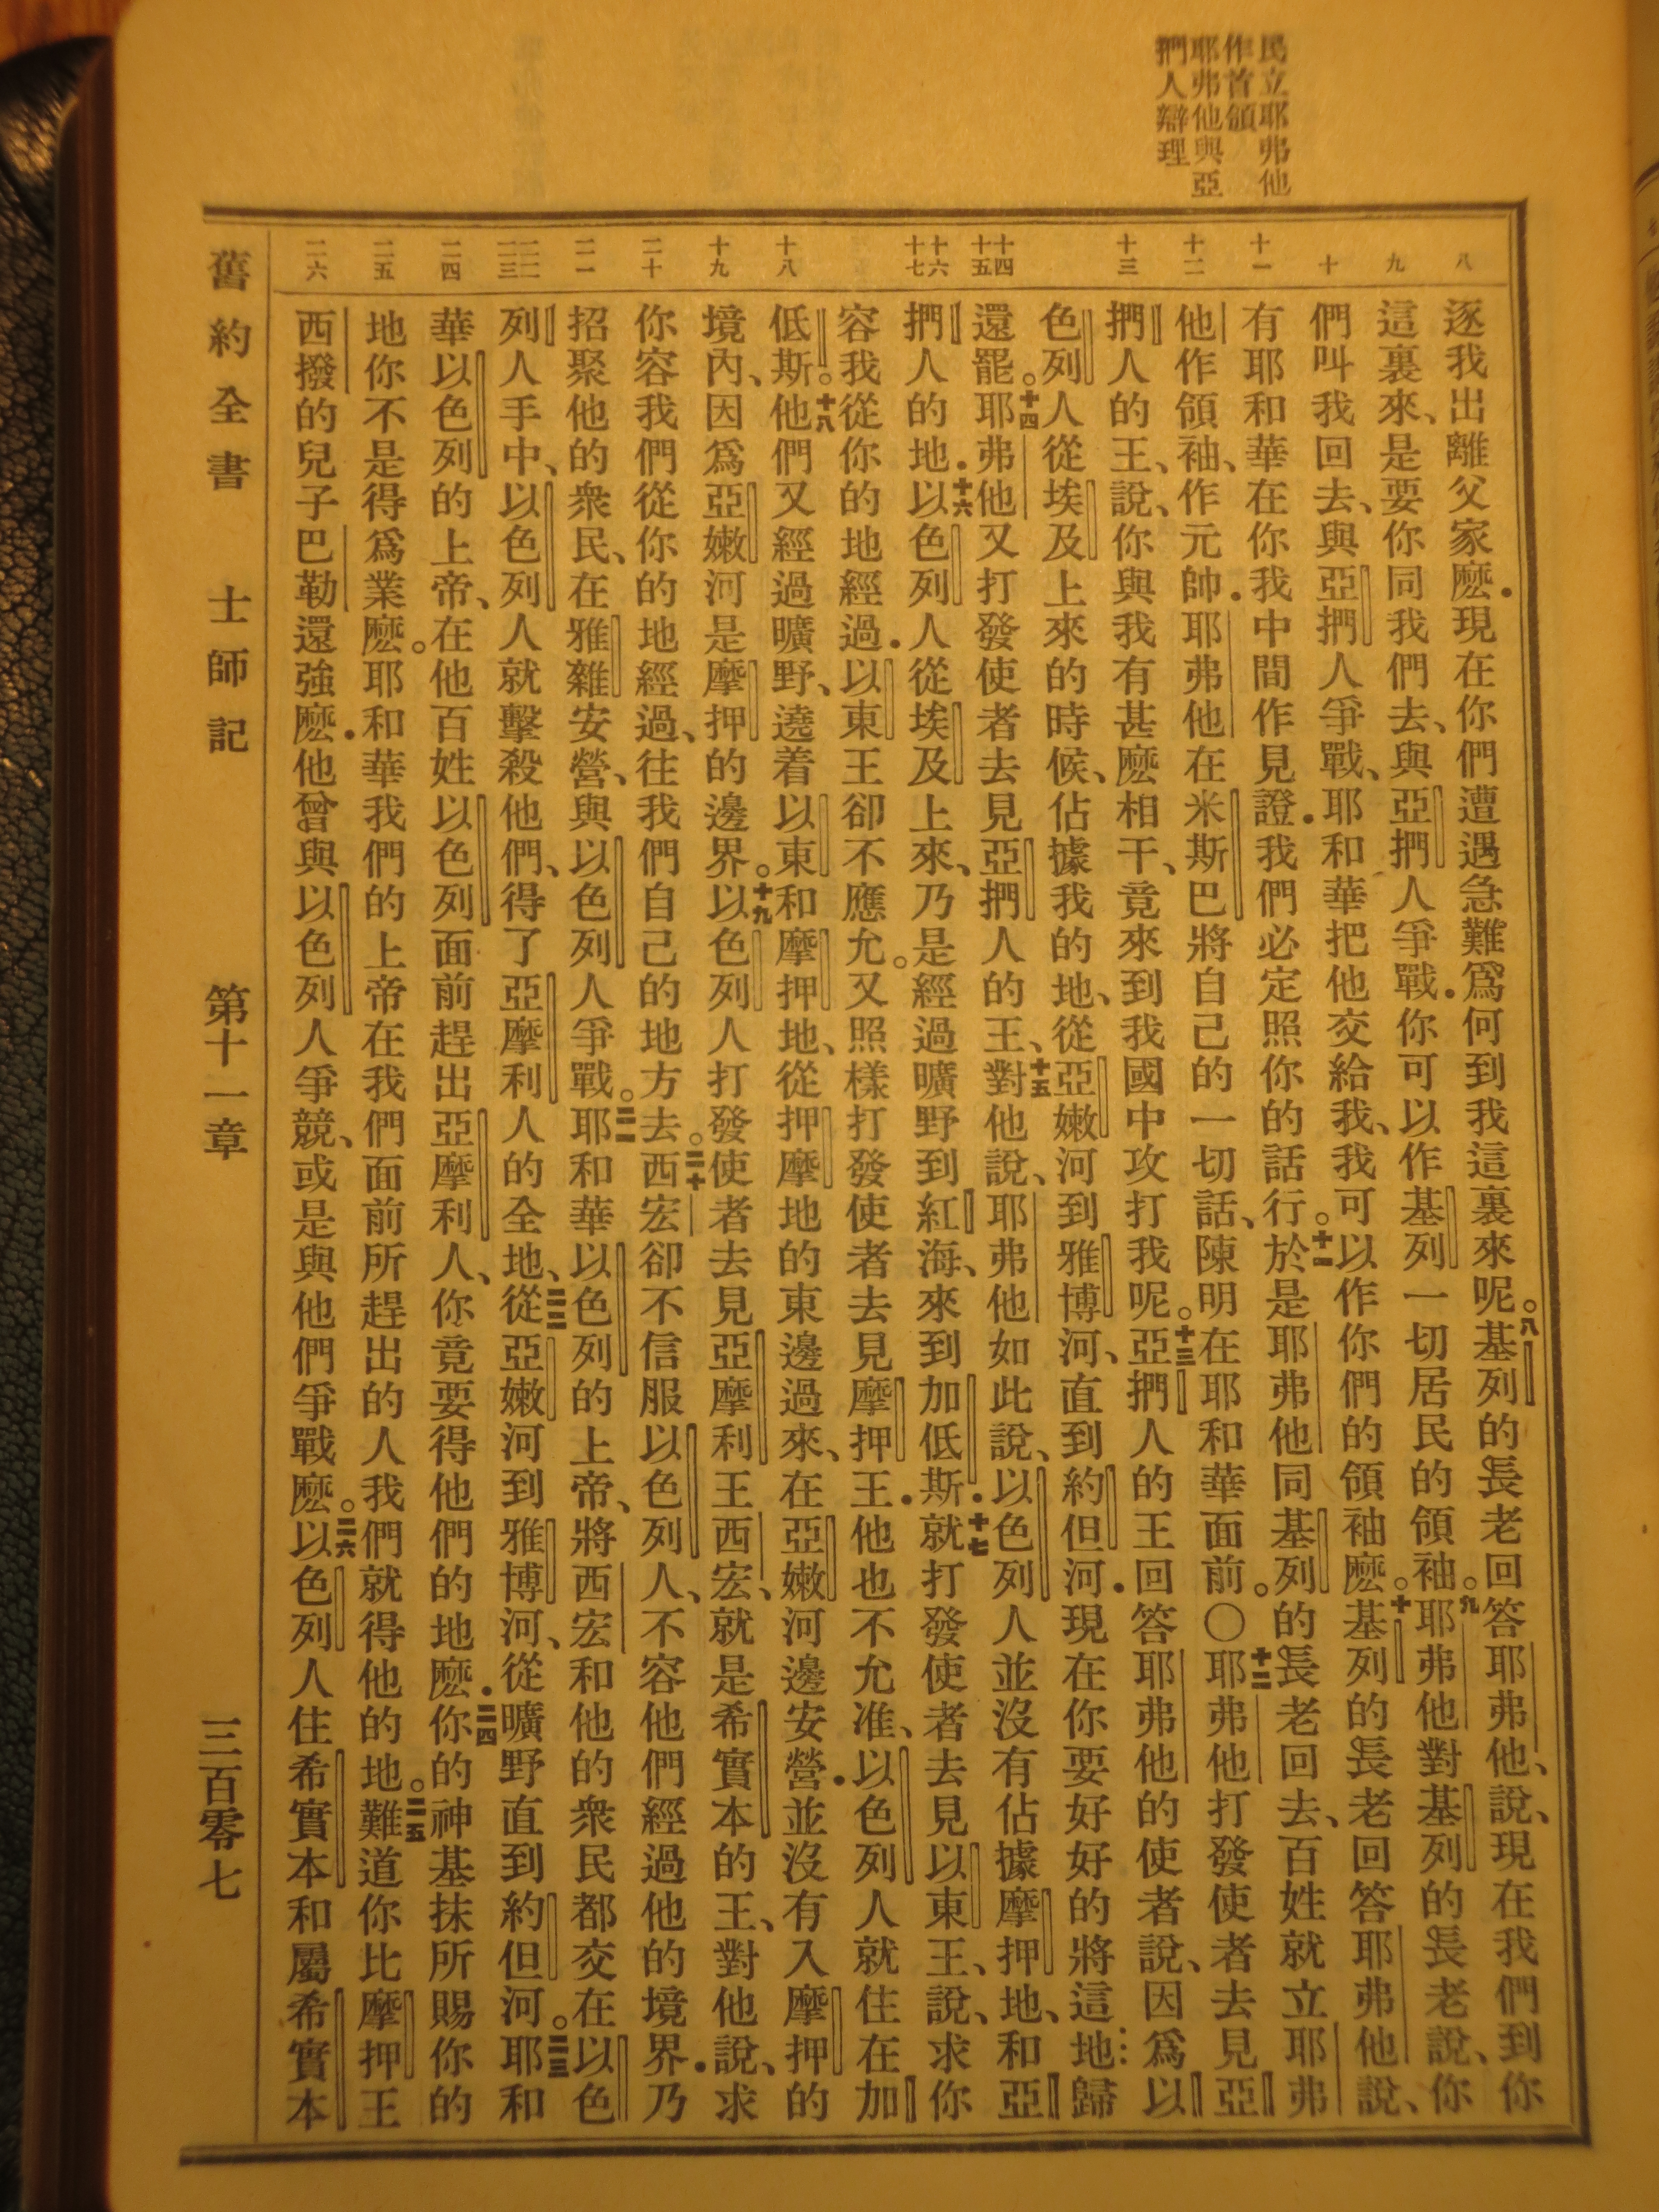 民立耶弗他
作首領
耶弗他與亞
捫人辯理
八
九
十
十一
十二
十三
十四
十五
十六
十七
十八
十九
二十
二一
二二
二三
二四
二五
二六
逐我出離父家麽．現在你們遭遇急難爲何到我這裏來呢。八基列的長老回答耶弗他、說、現在我們到你
這裏來、是要你同我們去、與亞捫人爭戰．你可以作基列一切居民的領袖。九耶弗他對基列的長老說、你
們叫我回去、與亞捫人爭戰、耶和華把他交給我、我可以作你們的領袖麽。十基列的長老回答耶弗他說、
有耶和華在你我中間作見證．我們必定照你的話行。十一於是耶弗他同基列的長老回去、百姓就立耶弗
他作領袖、作元帥．耶弗他在米斯巴將自己的一切話、陳明在耶和華面前。〇十二耶弗他打發使者去見亞
捫人的王、說、你與我有甚麽相干、竟來到我國中攻打我呢。十三亞捫人的王回答耶弗他的使者說、因爲以
色列人從埃及上來的時候、佔據我的地、從亞嫩河到雅博河、直到約但河．現在你要好好的將這地歸
還罷。十四耶弗他又打發使者去見亞捫人的王、十五對他說、耶弗他如此說、以色列人並沒有佔據摩押地、和亞
捫人的地．十六以色列人從埃及上來、乃是經過曠野到紅海、來到加低斯．十七就打發使者去見以東王、說、求你
容我從你的地經過．以東王卻不應允。又照樣打發使者去見摩押王．他也不允准、以色列人就住在加
低斯。十八他們又經過曠野、遶着以東和摩押地、從押摩地的東邊過來、在亞嫩河邊安營．並沒有入摩押的
境內、因爲亞嫩河是摩押的邊界。十九以色列人打發使者去見亞摩利王西宏、就是希實本的王、對他說、求
你容我們從你的地經過、往我們自己的地方去。二十西宏卻不信服以色列人、不容他們經過他的境界．乃
招聚他的衆民、在雅雜安營、與以色列人爭戰。二一耶和華以色列的上帝、將西宏和他的衆民都交在以色
列人手中、以色列人就擊殺他們、得了亞摩利人的全地、二二從亞嫩河到雅博河、從曠野直到約但河。二三耶和
華以色列的上帝、在他百姓以色列面前趕出亞摩利人、你竟要得他們的地麽．二四你的神基抹所賜你的
地你不是得爲業麽。耶和華我們的上帝在我們面前所趕出的人我們就得他的地。二五難道你比摩押王
西撥的兒子巴勒還強麽．他曾與以色列人爭競、或是與他們爭戰麽。二六以色列人住希實本和屬希實本
舊約全書　士師記　第十一章　三百零七